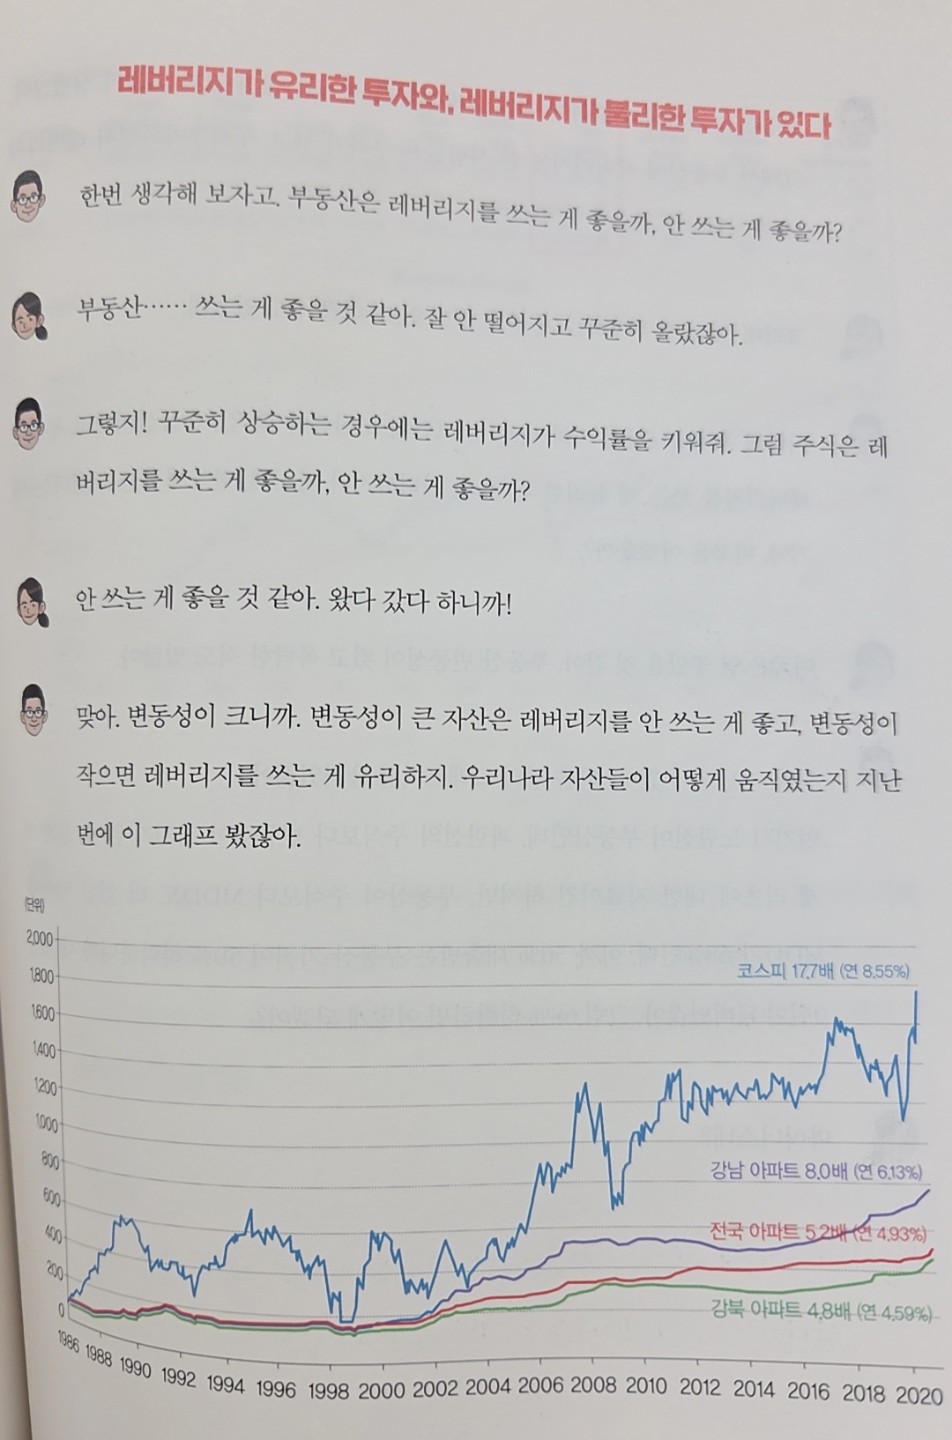 레버리지가 유리한 투자와, 레버리지가 불리한 투자가 있다
한번 생각해 보자고. 부동산은 레버리지를 쓰는 게 좋을까, 안 쓰는 게 좋을까?
부동산…… 쓰는 게 좋을 것 같아. 잘 안 떨어지고 꾸준히 올랐잖아.
그렇지! 꾸준히 상승하는 경우에는 레버리지가 수익률을 키워줘. 그럼 주식은 레
버리지를 쓰는 게 좋을까, 안 쓰는 게 좋을까?
안 쓰는 게 좋을 것 같아. 왔다 갔다 하니까!
맞아. 변동성이 크니까. 변동성이 큰 자산은 레버리지를 안 쓰는 게 좋고, 변동성이
작으면 레버리지를 쓰는 게 유리하지. 우리나라 자산들이 어떻게 움직였는지 지난
번에 이 그래프 봤잖아.
(단위)
2,000
1,800
1,600
1,400
1,200
1,000
800
600
400
200
0
코스피 17.7배 (연 8.55%)
강남 아파트 8.0배 (연 6.13%)
전국 아파트 5.2배 (연 4.93%)
강북 아파트 4.8배 (연 4.59%)
1986 1988 1990 1992 1994 1996 1998 2000 2002 2004 2006 2008 2010 2012 2014 2016 2018 2020